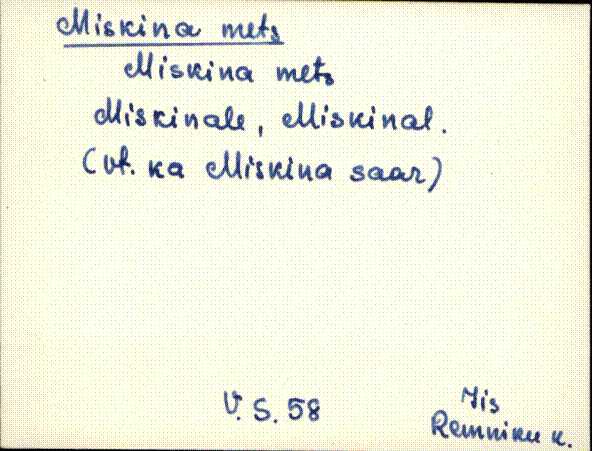 Miskina mets
Miskina mets
Miskinale, Miskinal.
(vt. ka Miskina saar)
V. S. 58
Iis
Remniku k.